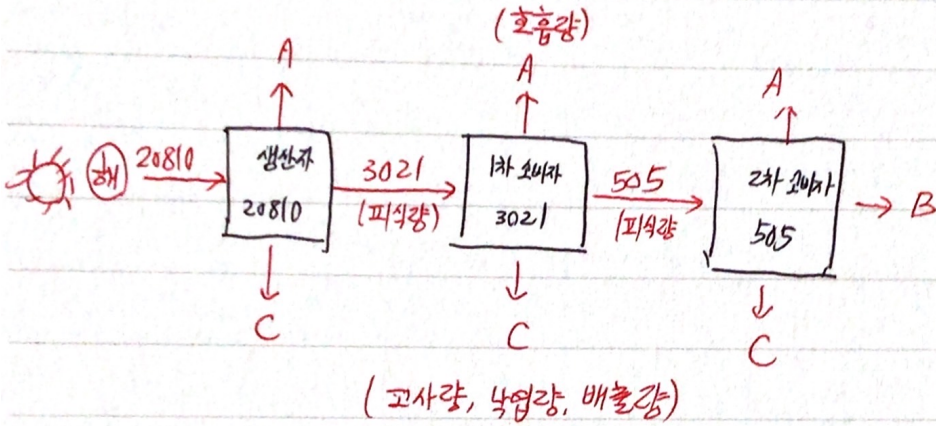 (호흡량)
A
A
A
해
20810
생산자
20810
3021
(피식량)
1차 소비자
3021
505
(피식량
2차 소비자
505
B
C
C
C
(고사량, 낙엽량, 배출량)